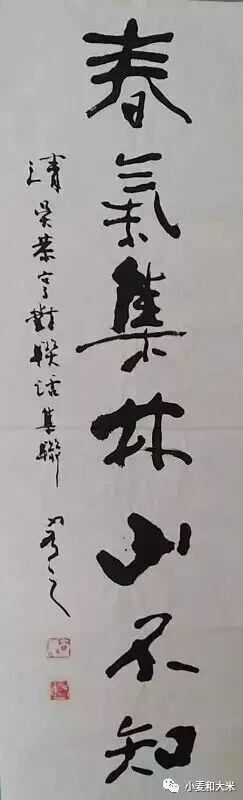 春氣集林山不知
清吳恭亨對聯話集聯
小麦和大米